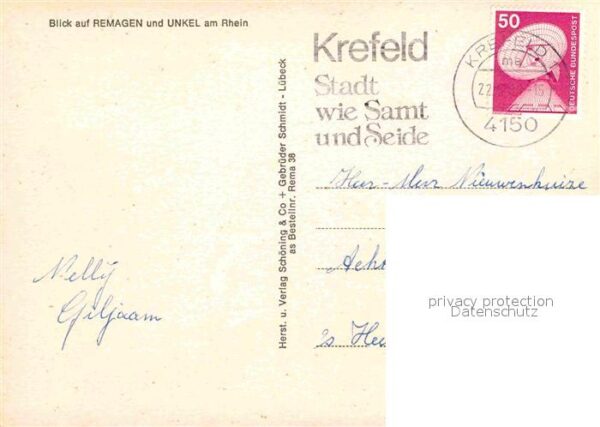 Blick auf REMAGEN und UNKEL am Rhein
Krefeld
Stadt
wie Samt
und Seide
KREFELD
me
22
4150
50
DEUTSCHE BUNDESPOST
Herst. u. Verlag Schöning & Co + Gebrüder Schmidt - Lübeck
as Bestellnr. Rema 38
Nelly
Giljaam
Heer - Mevr Nieuwenhuize
Acht
's Hee
privacy protection
Datenschutz